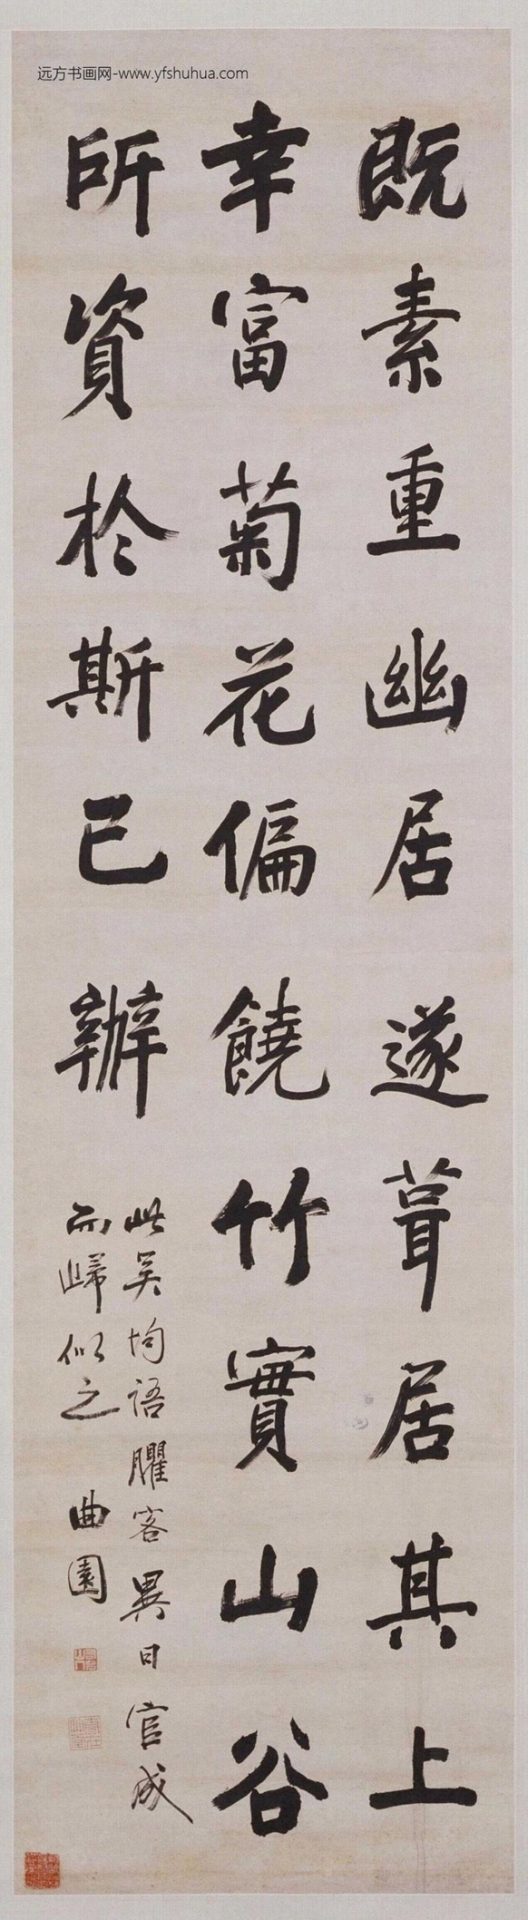 远方书画网-www.yfshuhua.com
既素重幽居遂葺居其上
幸富菊花偏饒竹實山谷
所資於斯已辦
此吴均語臞客異日官成
而歸似之 曲園